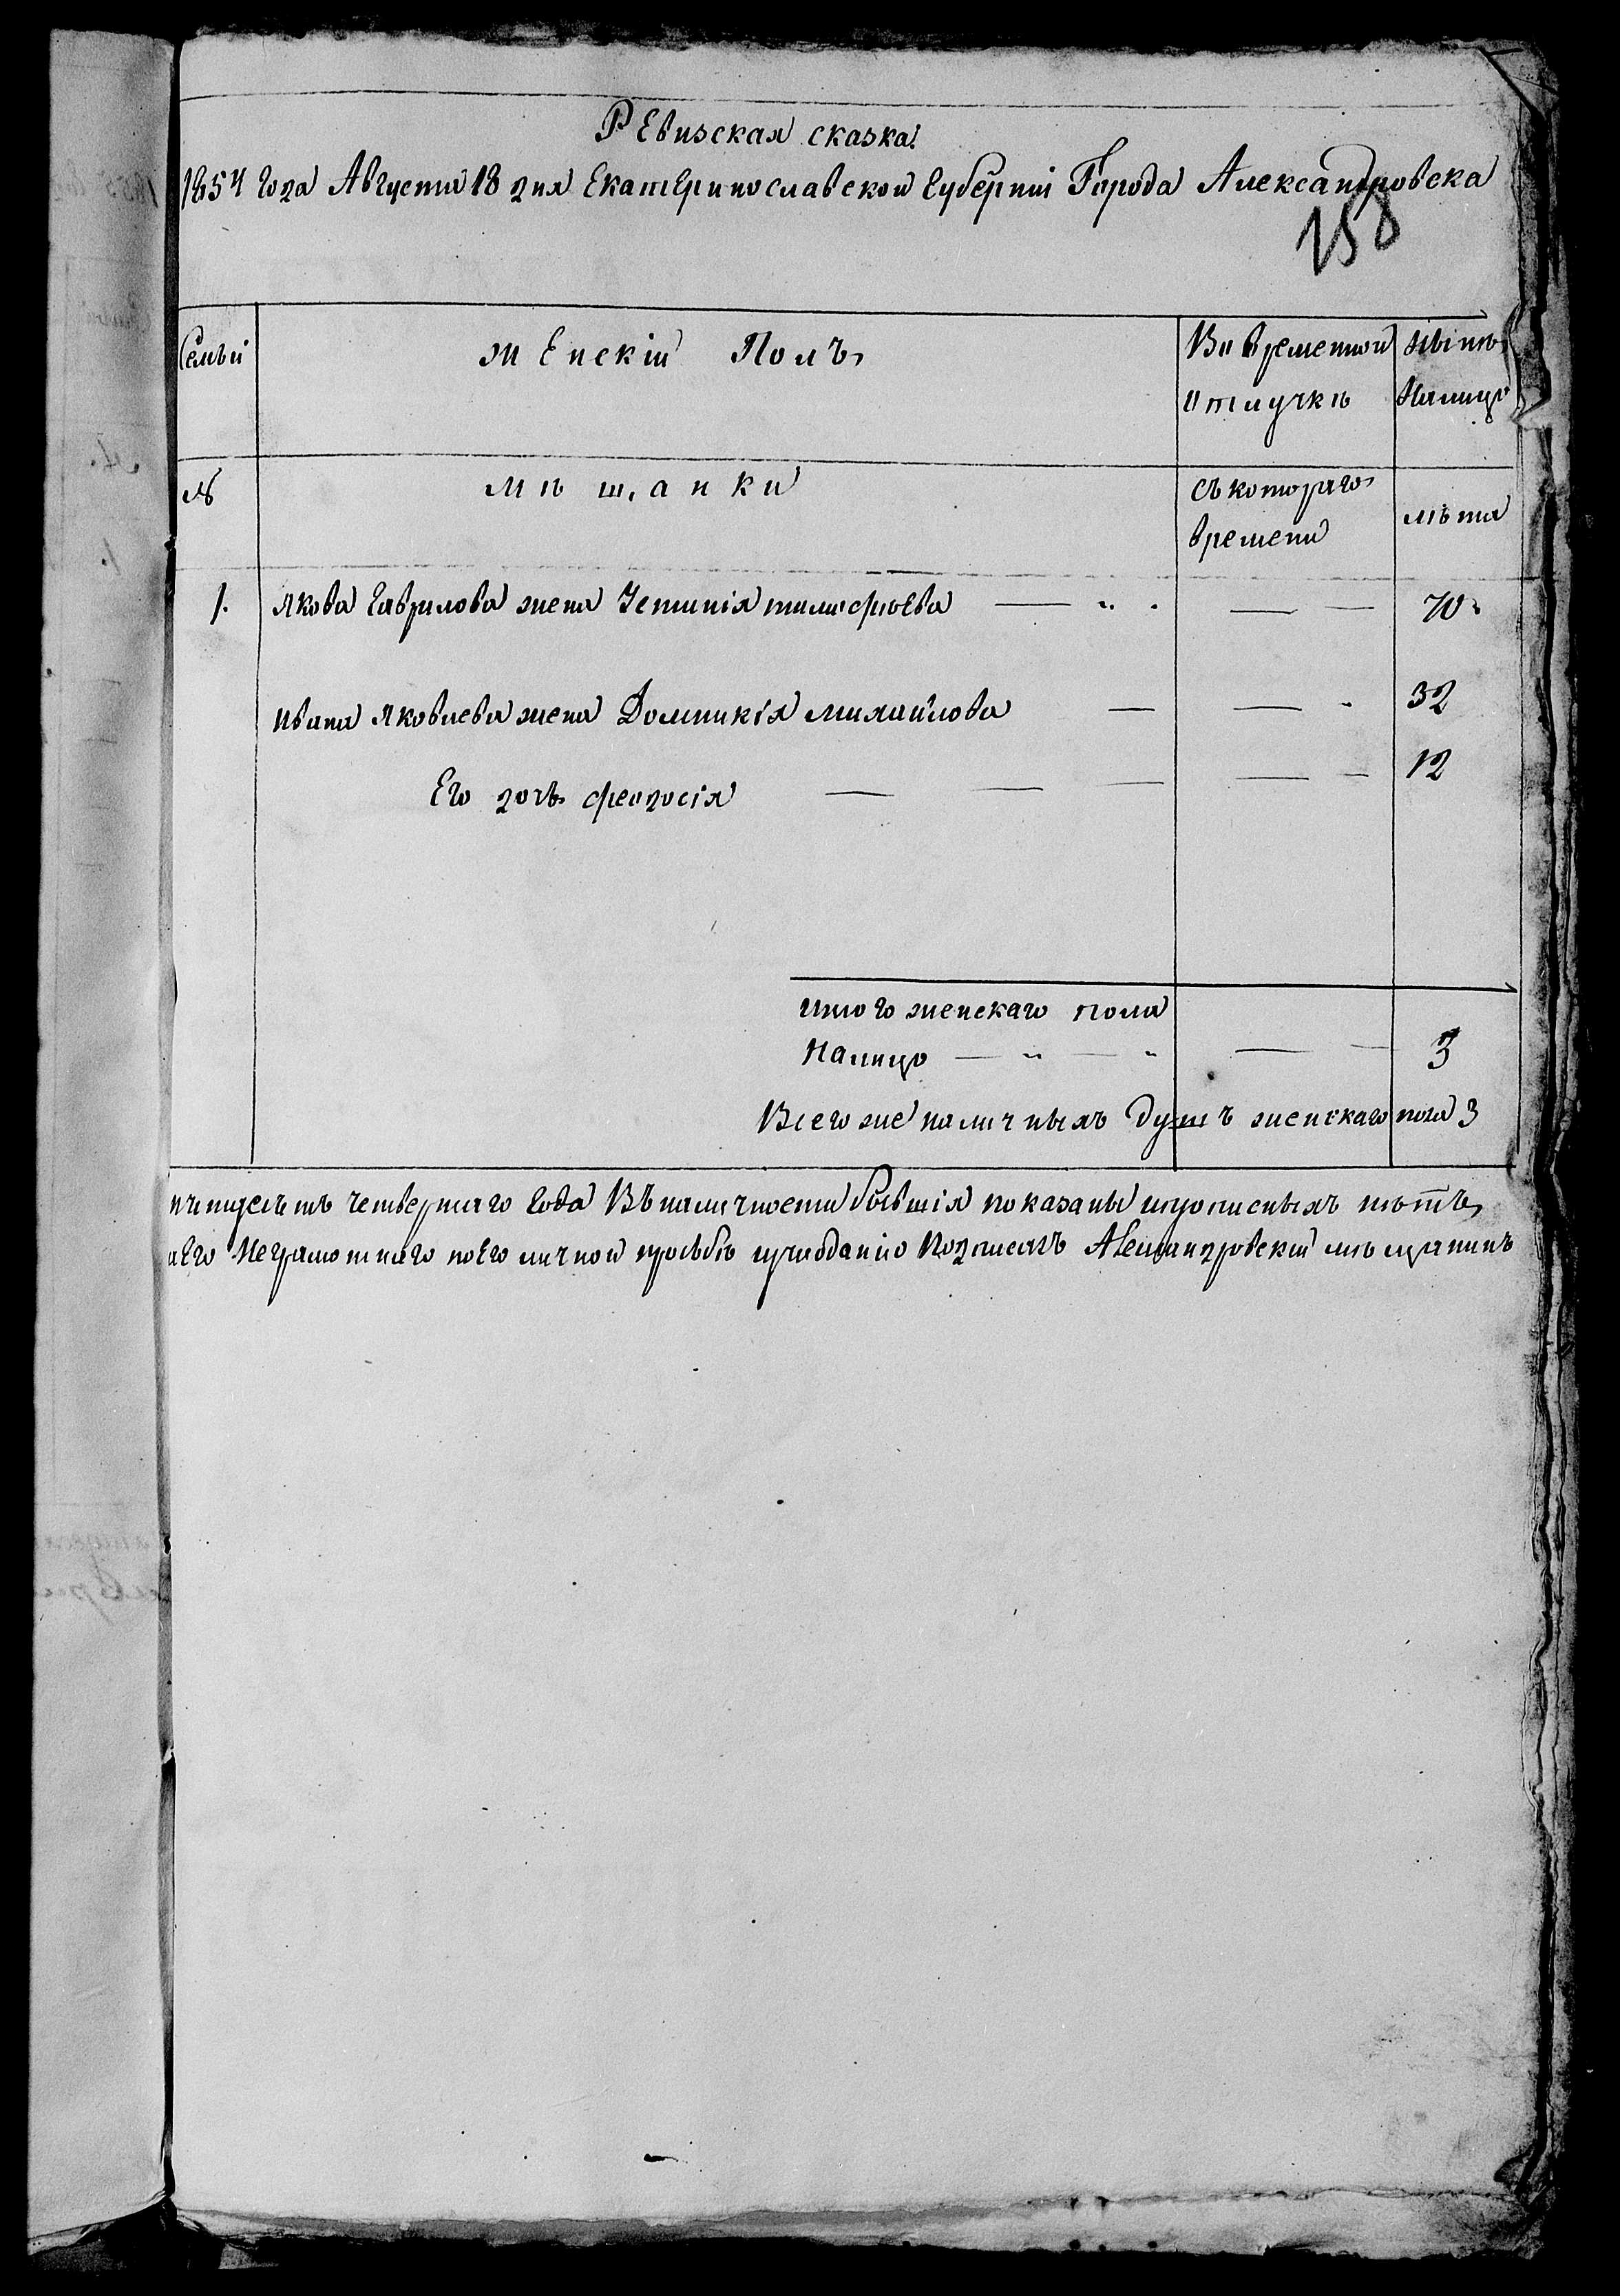 Ревизская сказка
1854 года Августа 18 дня Екатеринославской Губерніи Города Александровска
158
Семьи
Женскій Полъ
Во временной
отлучкѣ
Нынѣ
Налицо
№
Мѣщанки
Съ котораго
времени
лѣта
1. Якова Гаврилова жена Устинія — — 70
Ивана Яковлева жена Домникія Михайлова — — 32
Его дочь Феодосія — — — — 12
Итого женскаго пола
Налицо — — — 3
Всего же наличныхъ душъ женскаго пола 3
четвертаго Года Въ наличности бывшія показаны и прописныхъ нѣтъ
Неграмотнаго по Его личной прозьбѣ Подписалъ Александровскій мѣщанинъ